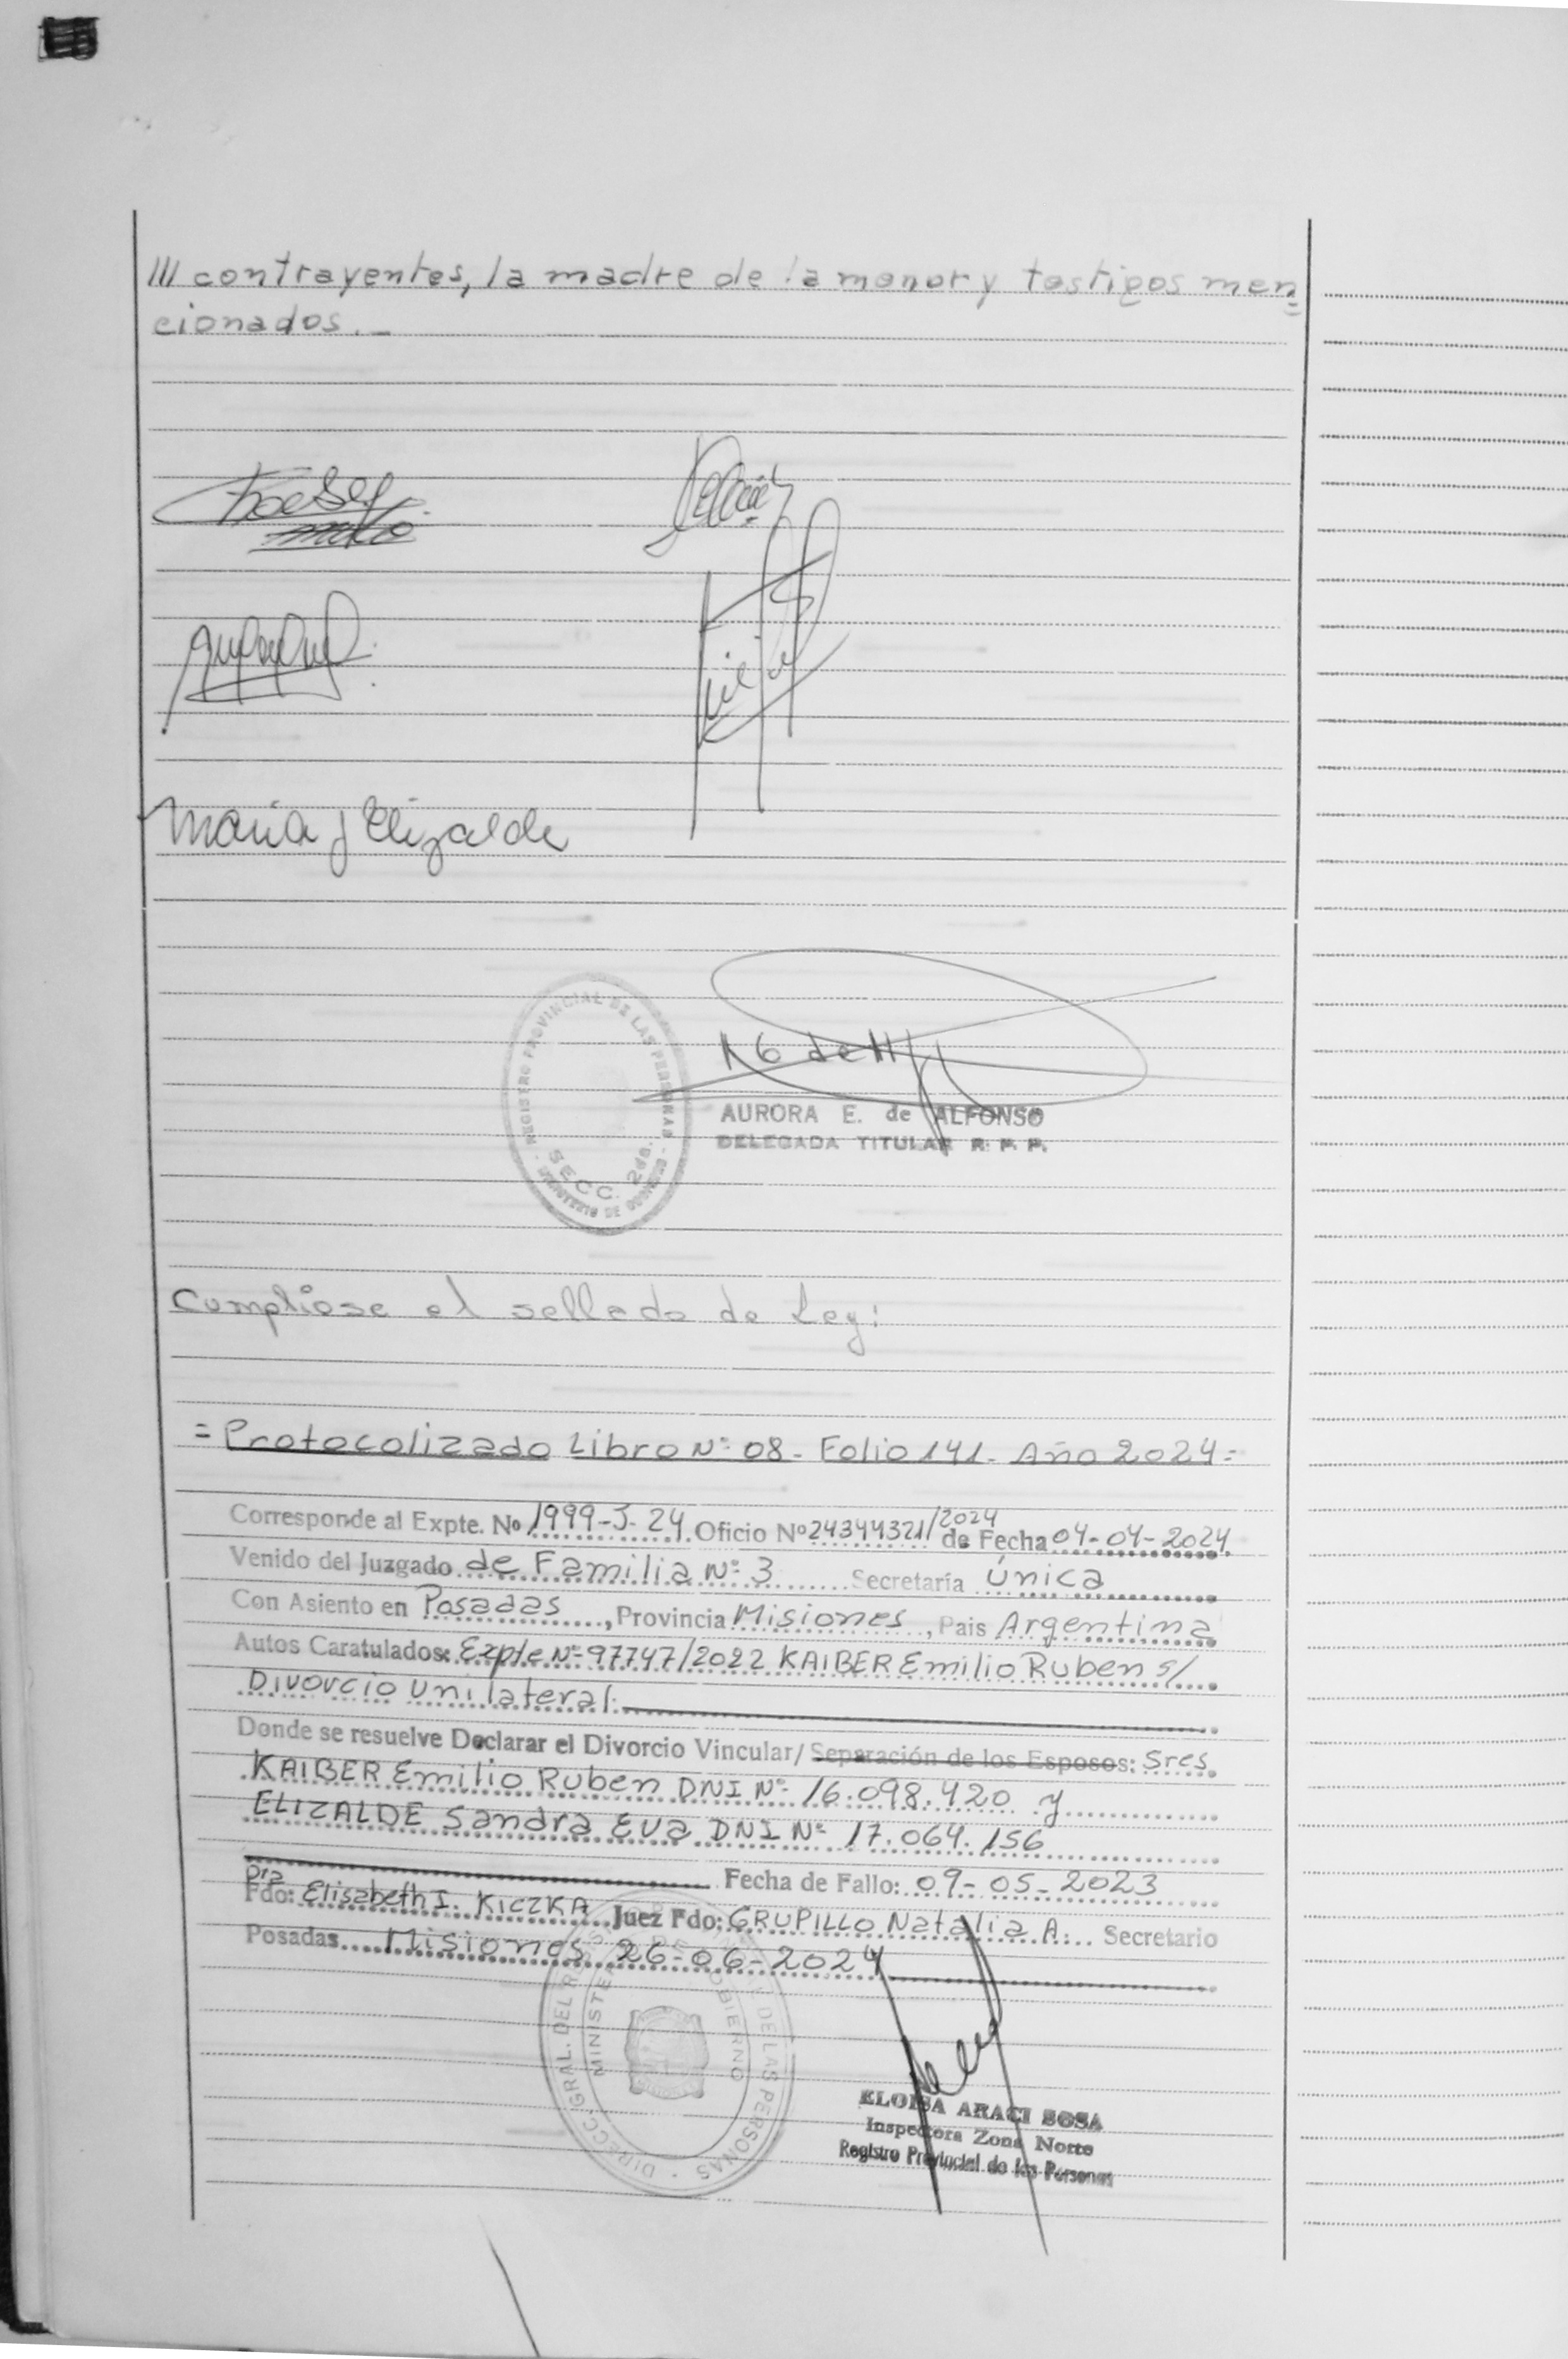 /// contrayentes, la madre de la menor y testigos men
cionados.-
Maria J Elizalde
REGISTRO PROVINCIAL DE LAS PERSONAS
SECC. 2da.
MINISTERIO DE GOBIERNO
AURORA E. de ALFONSO
DELEGADA TITULAR R. P. P.
Cumpliose el sellado de Ley:
= Protocolizado Libro Nº 08 - Folio 141 - Año 2024 =
Corresponde al Expte. Nº 1999-J-24 Oficio Nº 24344321/2024 de Fecha 04-04-2024
Venido del Juzgado de Familia Nº 3 Secretaría Única
Con Asiento en Posadas, Provincia Misiones, Pais Argentina
Autos Caratulados: Expte Nº 97747/2022 KAIBER Emilio Ruben s/
Divorcio Unilateral.
Donde se resuelve Declarar el Divorcio Vincular/ Separación de los Esposos: Sres
KAIBER Emilio Ruben DNI Nº 16.098.420 y
ELIZALDE Sandra Eva DNI Nº 17.064.156
Fecha de Fallo: 09-05-2023
Fdo: Dra Elisabeth I. KICZKA Juez Fdo: GRUPILLO Natalia A. Secretario
Posadas Misiones 26-06-2024
DIRECC. GRAL. DEL REGISTRO PROVINCIAL DE LAS PERSONAS
MINISTERIO DE GOBIERNO
ELOISA ARACI SOSA
Inspectora Zona Norte
Registro Provincial de las Personas